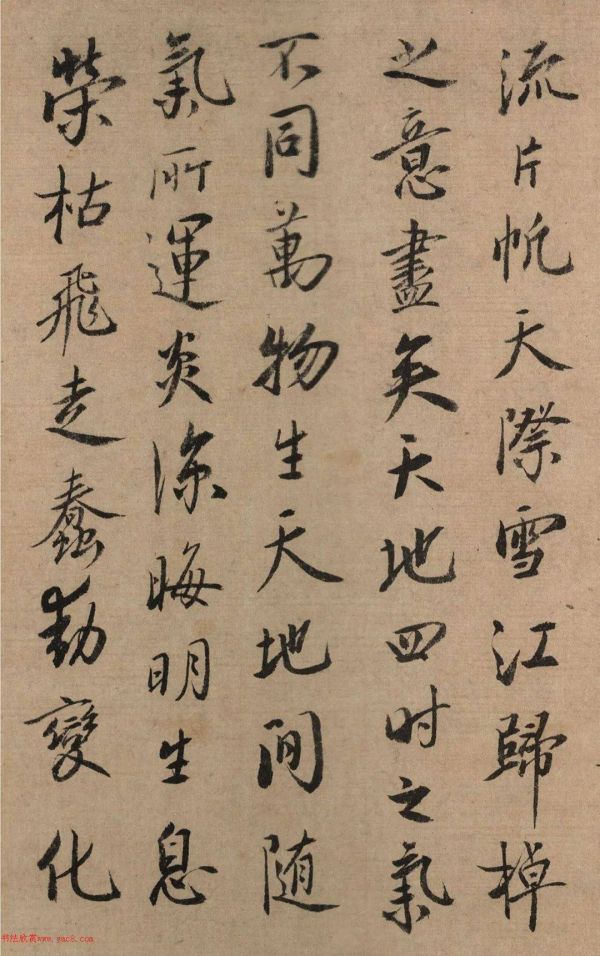 流片帆天際雪江歸棹
之意盡矣天地四时之氣
不同萬物生天地间随
氣所運炎涼晦明生息
榮枯飛走蠢動變化
书法欣赏www.yac8.com